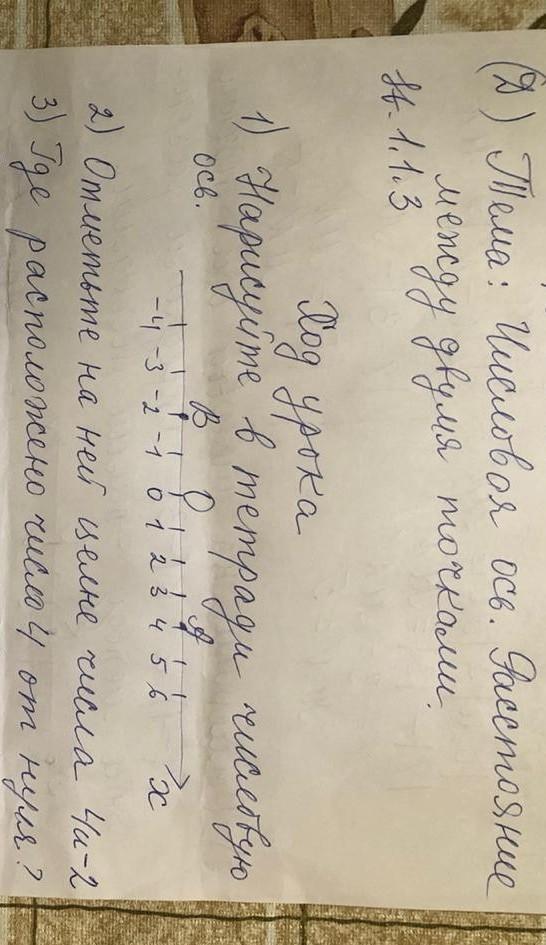 (Д) Тема: Числовая ось. Расстояние
между двумя точками.
1.1.3
Ход урока
1) Нарисуйте в тетради числовую
ось.
B O A
-4 -3 -2 -1 0 1 2 3 4 5 6 x
2) Отметьте на ней целые числа 4 и -2
3) Где расположено число 4 от нуля?